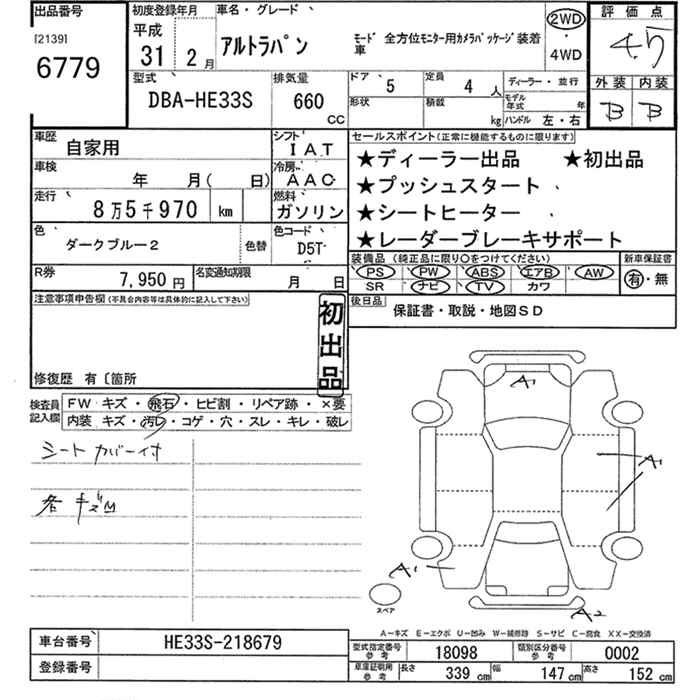 出品番号
[2139]
6779
初度登録年月
平成
31 2月
車名・グレード
アルトラパン
モード 全方位モニター用カメラパッケージ装着車
2WD
・
4WD
評価点
4.5
外装 内装
B B
型式
DBA-HE33S
排気量
660
CC
ドア 5
定員 4人
形状
積載 kg
ディーラー・並行
モデル年式 年
ハンドル 左・右
車歴 自家用
シフト IAT
車検 年 月( 日)
冷房 AAC
走行 8万5千970 km
燃料 ガソリン
色 ダークブルー2
色替
色コード D5T
R券 7,950円
名変通知期限 月 日
セールスポイント(正常に機能するものに限ります)
★ディーラー出品 ★初出品
★プッシュスタート
★シートヒーター
★レーダーブレーキサポート
装備品(純正品に限り○をつけてください)
PS PW ABS エアB AW
SR ナビ TV カワ
新車保証書
有・無
後日品
保証書・取説・地図SD
注意事項申告欄(不具合内容等は具体的に記入して下さい)
初出品
修復歴 有〔箇所
検査員記入欄
FW キズ・飛石・ヒビ割・リペア跡・×要
内装 キズ・汚レ・コゲ・穴・スレ・キレ・破レ
シートカバー付
各キズM
A1
A1
A1
A2
スペア
A-キズ E-エクボ U-凹み W-補修跡 S-サビ C-腐食 XX-交換済
車台番号 HE33S-218679
登録番号
型式指定番号 参考 18098
類別区分番号 参考 0002
車庫証明用 参考
長さ 339 cm
幅 147 cm
高さ 152 cm